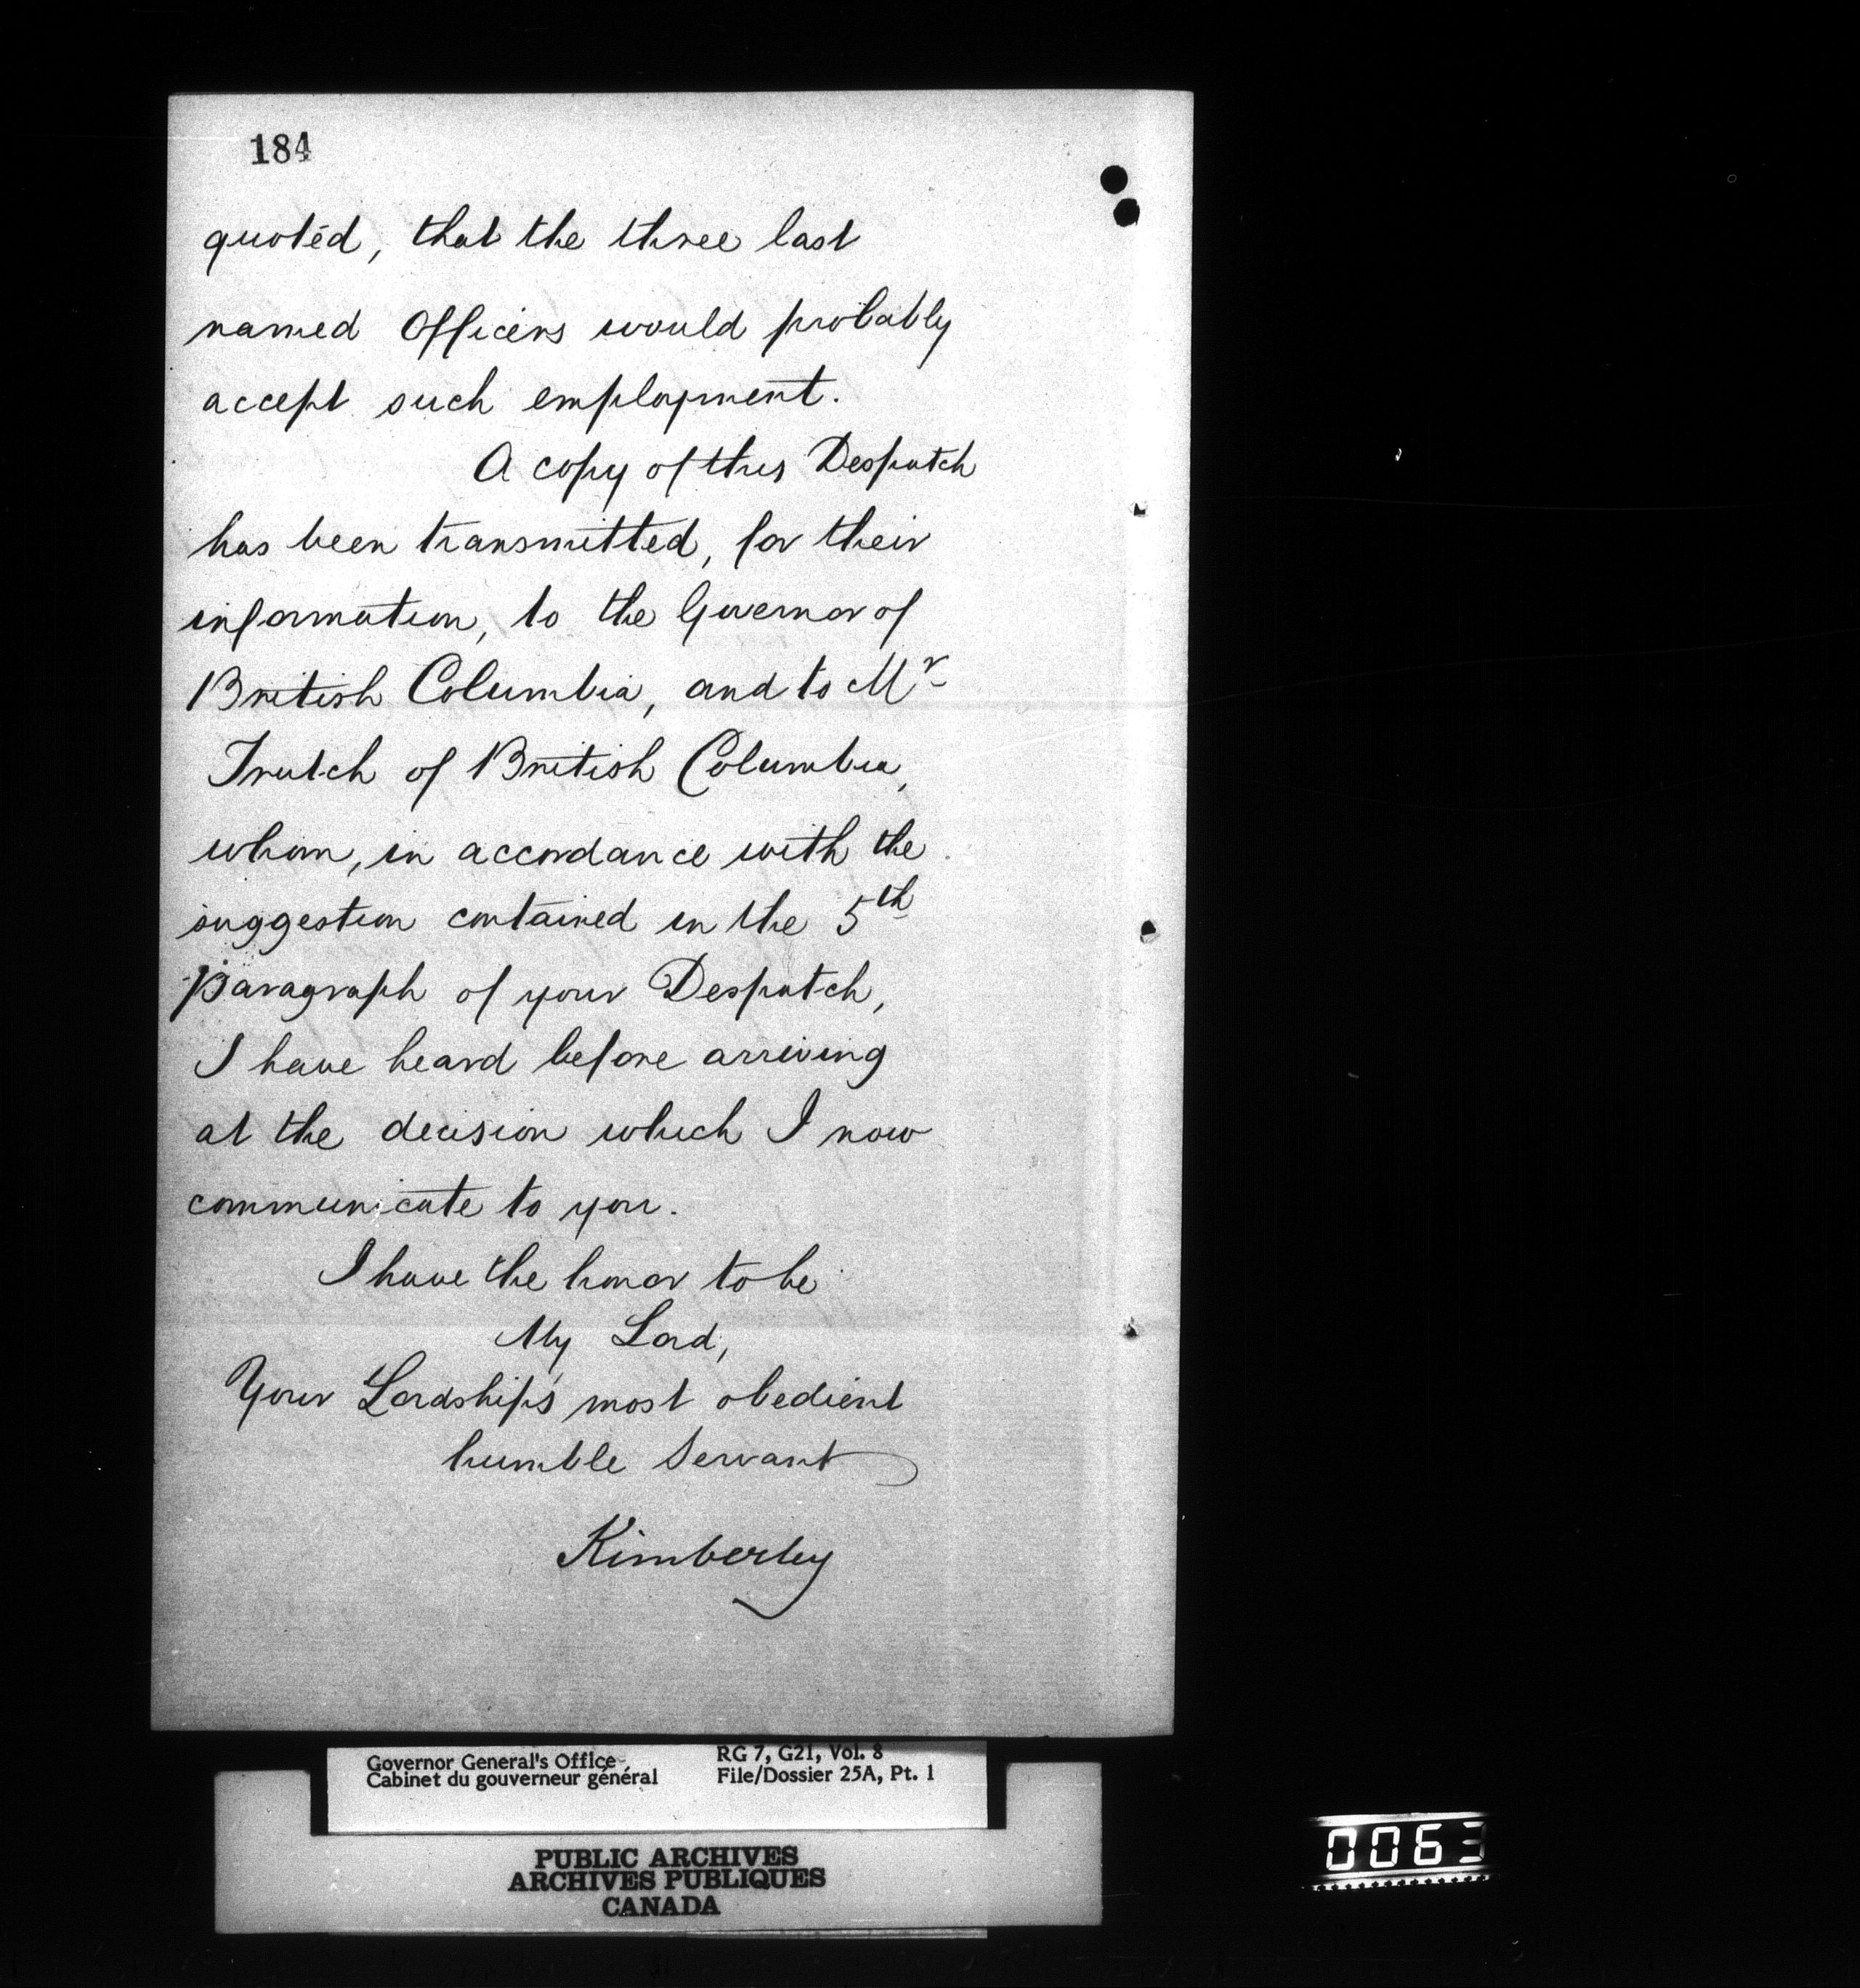 184
quoted, that the three last
named Officers would probably
accept such employment.
A copy of this Despatch
has been transmitted, for their
information, to the Governor of
British Columbia, and to Mr
Trutch of British Columbia,
whom, in accordance with the
suggestion contained in the 5th
Paragraph of your Despatch,
I have heard before arriving
at the decision which I now
communicate to you.
I have the honor to be
My Lord,
Your Lordship's most obedient
humble Servant
Kimberley
Governor General's Office
Cabinet du gouverneur général
RG 7, G21, Vol. 8
File/Dossier 25A, Pt. 1
PUBLIC ARCHIVES
ARCHIVES PUBLIQUES
CANADA
0063